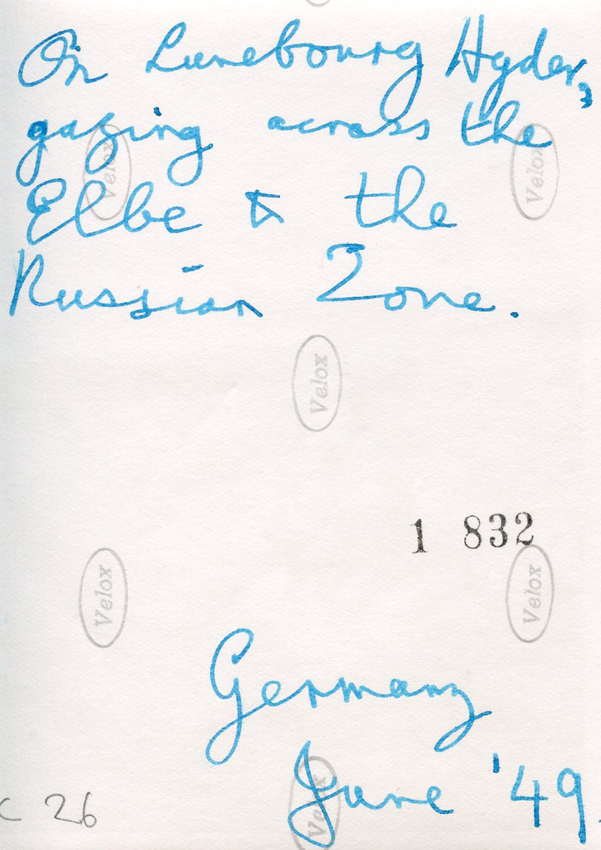 On Lunebourg Hyder,
gazing across the
Velox Velox
Elbe & the
Russian Zone.
Velox
1 832
Velox Velox
Germany
June '49.
Velox
C 26